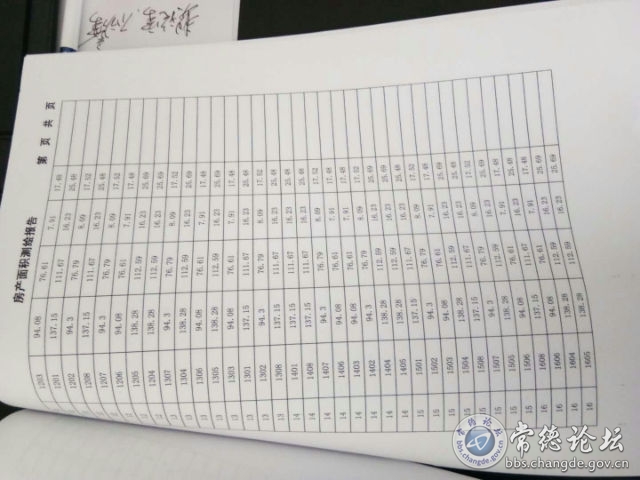 房产面积测绘报告
第 页 共 页
1203 94.08 76.61 7.91 17.48
1201 137.15 111.67 16.23 25.48
1202 94.3 76.79 8.09 17.52
1208 137.15 111.67 16.23 25.48
1207 94.3 76.79 8.09 17.52
1206 94.08 76.61 7.91 17.48
1205 138.28 112.59 16.23 25.69
1204 138.28 112.59 16.23 25.69
13 1307 94.3 76.79 8.09 17.52
13 1304 138.28 112.59 16.23 25.69
13 1306 94.08 76.61 7.91 17.48
13 1305 138.28 112.59 16.23 25.69
13 1303 94.08 76.61 7.91 17.48
13 1301 137.15 111.67 16.23 25.48
13 1302 94.3 76.79 8.09 17.52
13 1308 137.15 111.67 16.23 25.48
14 1401 137.15 111.67 16.23 25.48
14 1408 137.15 111.67 16.23 25.48
14 1407 94.3 76.79 8.09 17.52
14 1406 94.08 76.61 7.91 17.48
14 1403 94.08 76.61 7.91 17.48
14 1402 94.3 76.79 8.09 17.52
14 1404 138.28 112.59 16.23 25.69
14 1405 138.28 112.59 16.23 25.69
15 1501 137.15 111.67 16.23 25.48
15 1502 94.3 76.79 8.09 17.52
15 1503 94.08 76.61 7.91 17.48
15 1504 138.28 112.59 16.23 25.69
15 1508 137.15 111.67 16.23 25.48
15 1507 94.3 76.79 8.09 17.52
15 1505 138.28 112.59 16.23 25.69
15 1506 94.08 76.61 7.91 17.48
16 1608 137.15 111.67 16.23 25.48
16 1606 94.08 76.61 7.91 17.48
16 1604 138.28 112.59 16.23 25.69
16 1605 138.28 112.59 16.23 25.69
常德论坛
bbs.changde.gov.cn